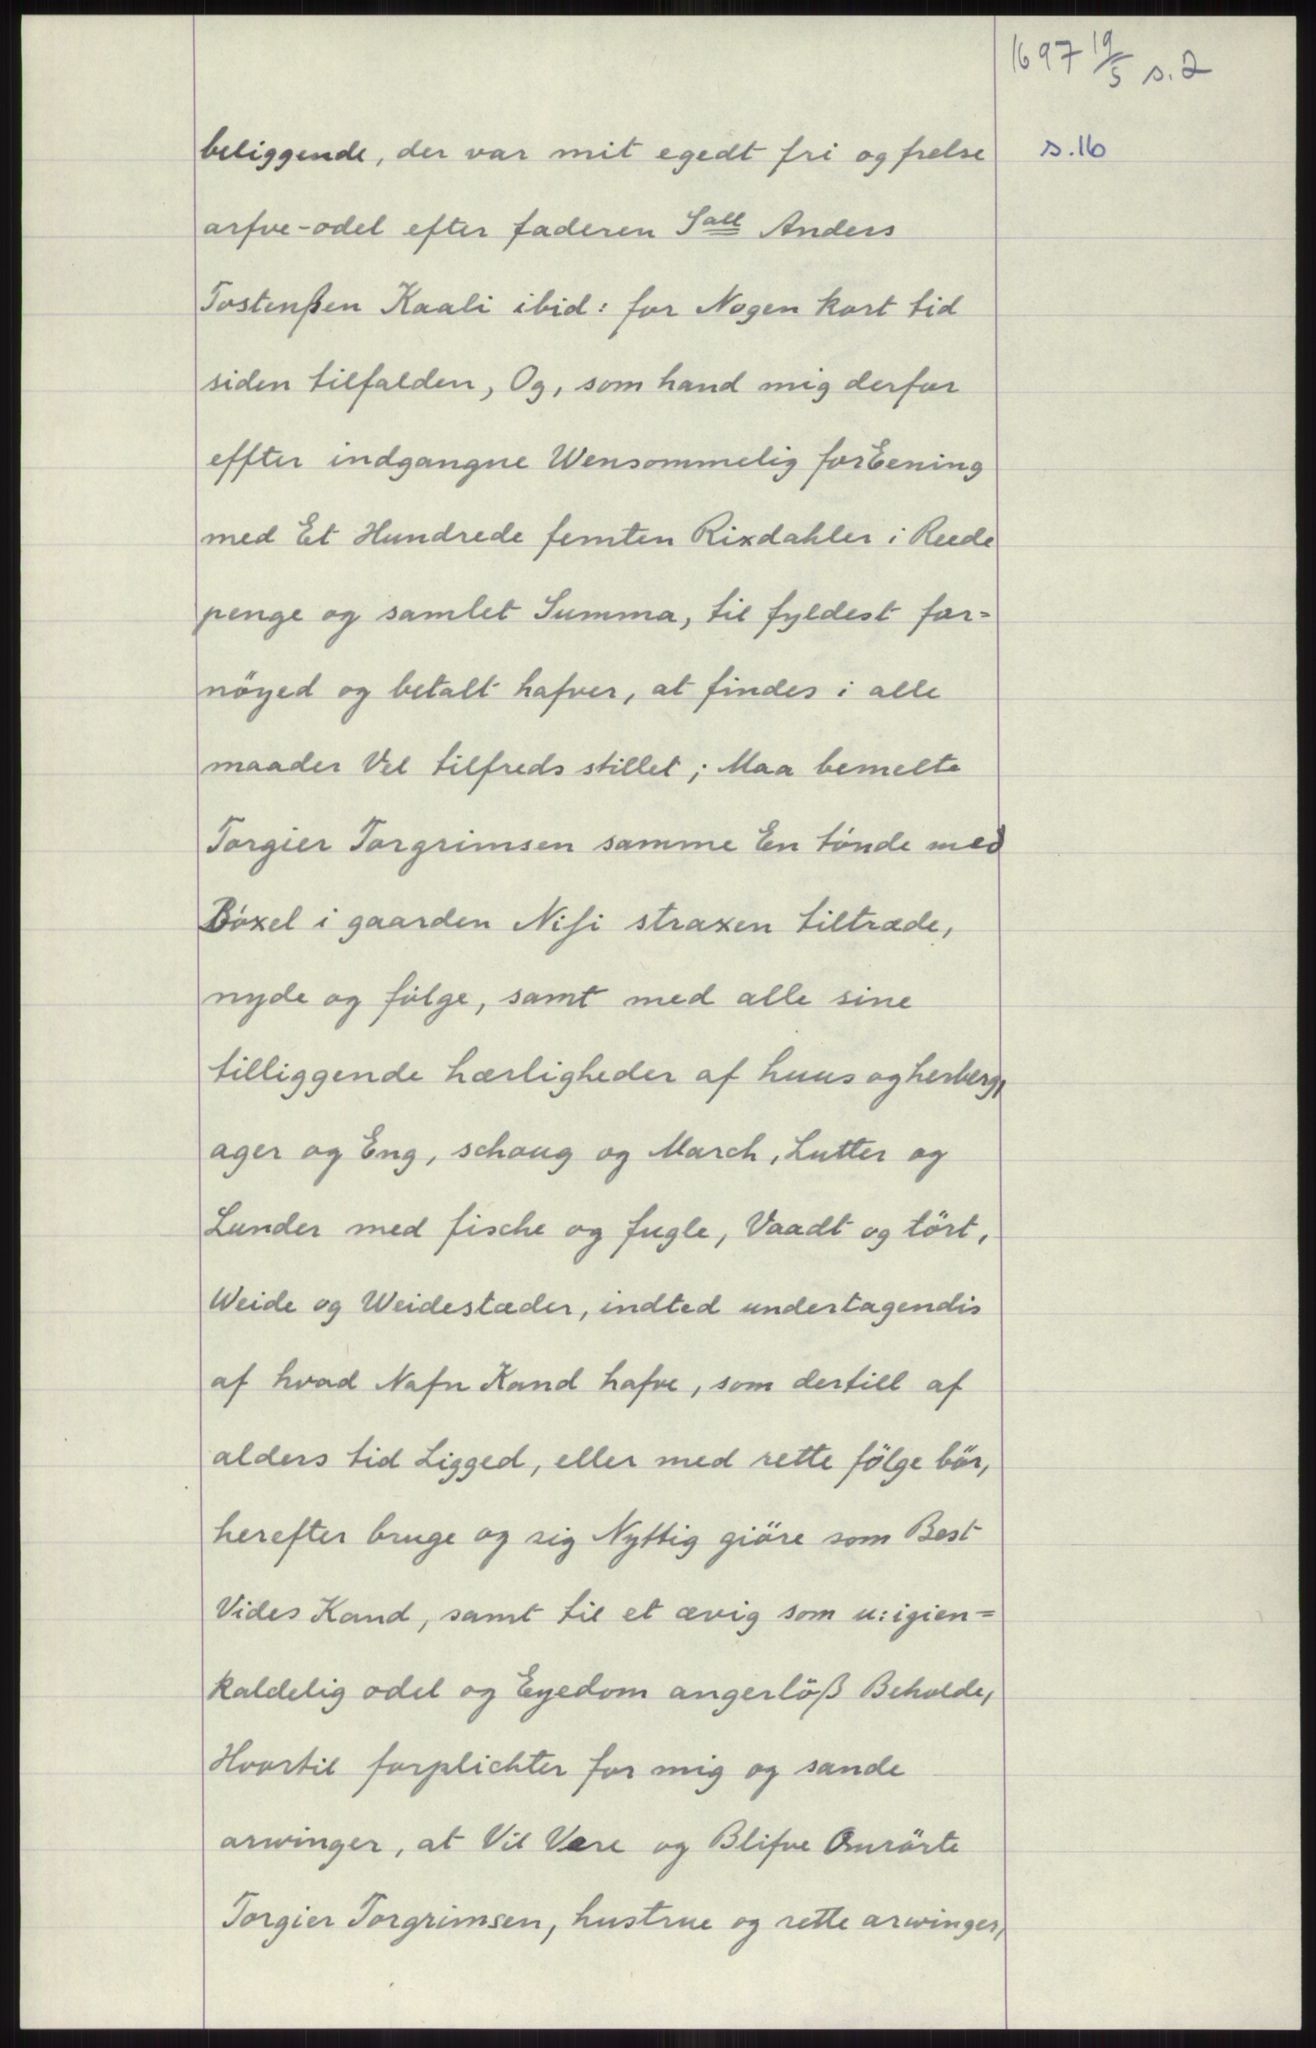 1697 19/5 s.2
beliggende, der var mit egedt fri og frelse s.16
arfve-odel efter faderen Sall Anders
Tostenßen Kaali ibid: for Nogen kort tid
siden tilfalden, Og, som hand mig derfor
effter indgangne Wensommelig forEening
med Et Hundrede femten Rixdahler i Reede
penge og samlet Summa, til fyldest for=
nöyed og betalt hafver, at findes i alle
maader Vel tilfreds stillet; Maa bemelte
Torgier Torgrimsen samme En tönde med
Böxel i gaarden Nisi straxen tiltræde,
nyde og fölge, samt med alle sine
tilliggende hærligheder af huus og herberg,
ager og Eng, schoug og March, Lutter og
Lunder med fische og fugle, Vaadt og tört,
Weide og Weidestæder, indted undertagendis
af hvad Nafn Kand hafve, som dertill af
alders tid Ligged, eller med rette fölge bör,
herefter bruge og sig Nyttig giöre som Best
Vides Kand, samt til et ævig som u:igien=
kaldelig odel og Eyedom angerlöß Beholde,
Hvortil forplichter for mig og sande
arwinger, at Vil Være og Blifve Omrörte
Torgier Torgrimsen, hustrue og rette arwinger,